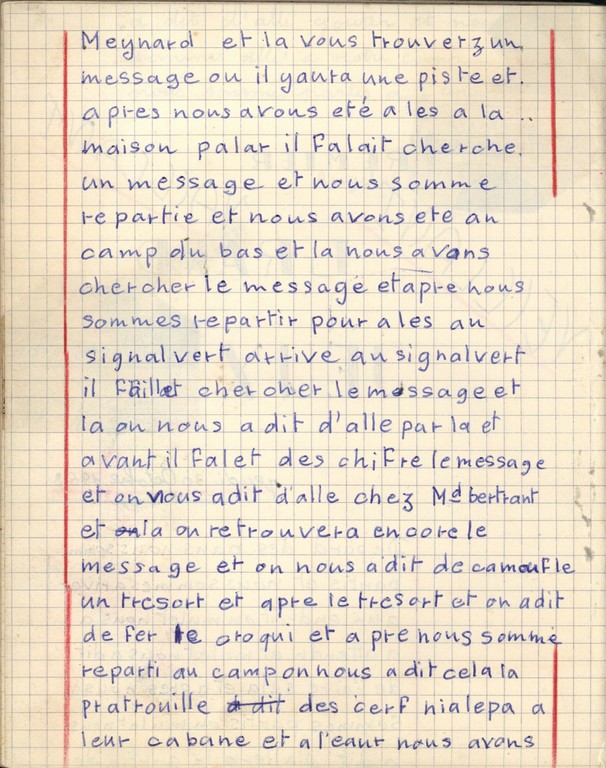 Meynard et la vous trouverz un
message ou il yaura une piste et.
apres nous avous eté a les a la ..
maison palar il Falait cherche.
un message et nous somme
repartie et nous avons ete au
camp du bas et la nous avans
chercher le message etapre nous
sommes repartir pour a les au
signal vert arrive au signal vert
il faillet chercher le message et
la on nous a dit d'alle par la et
avant il Falet des chiFre le message
et on nous adit d'alle chez Md bertrant
et la on retrouvera encore le
message et on nous a dit de camoufle
un tresort et apre le tresort et on a dit
de fer le croqui et a pre nous somme
reparti au camp on nous a dit cela la
pratrouille a dit des cerf nialepa a
leur cabane et a l'eaur nous avons